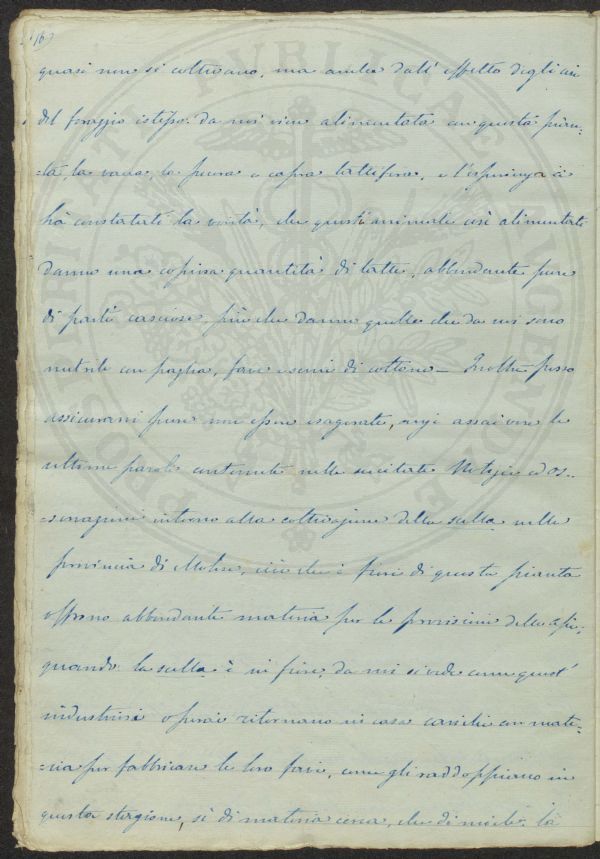 16)
quasi non si coltivano, ma anche dall' effetto degli usi
del foraggio istesso. da noi viene alimentata con questa pian-
=ta, la vacca, la pecora e capra lattifera, e l'esperienza ci
hà constatati la verità, che questi animali così alimentati
danno una copiosa quantità di latte, abbondante pure
di parti caseiose, più che danno quelle che da noi sono
nutrite con paglia, fave e semi di cottone — Inoltre posso
assicurarvi pure non essere esagerate, anzi assai vere le
ultime parole contenute nelle succitate Notizie ed os-
=servazioni intorno alla coltivazione della sulla nella
provincia di Molise, cioè che i fiori di questa pianta
offrono abbondante materia per le provisioni delle api;
quando la sulla è in fiore, da noi si vede come quest'
industriosi operai ritornano in casa carichi con mate-
=ria per fabbricare le loro favi, come gli raddoppiano in
questa stagione, sì di materia cerea, che di miele. la
PRIVAT PVBLICAE PROCVL LVGENDVM E